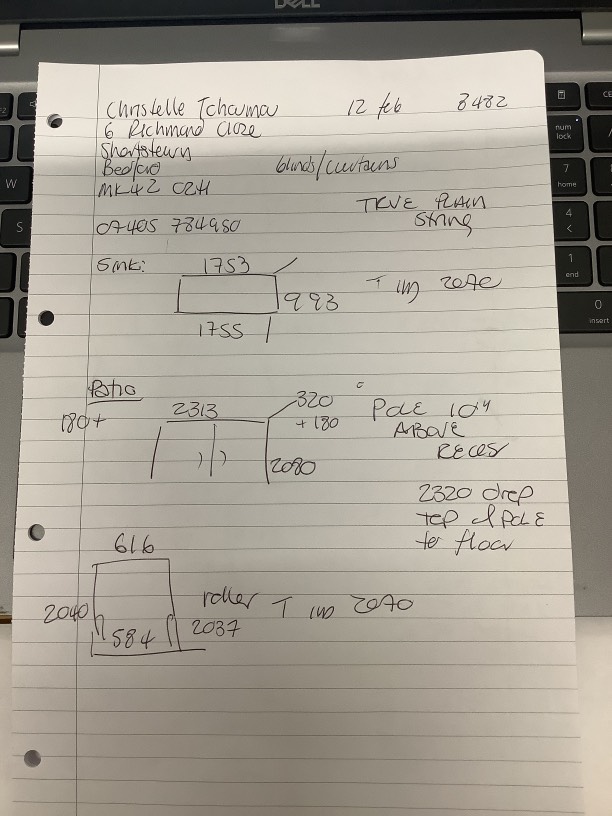 Christelle Tchauma 12 feb 8482
6 Richmond Close
Shortstown
Bedford blinds/curtains
MK42
07405 784980
TRUE PLAIN
String
1753
993
1755
Patio
2313
320
+ 180
180+
2080
Pole 10"
ABOVE
RECESS
2320 drop
top of POLE
to floor
616
2040
584
2037
roller
DELL
num
lock
7
home
4
1
end
0
insert
W
S